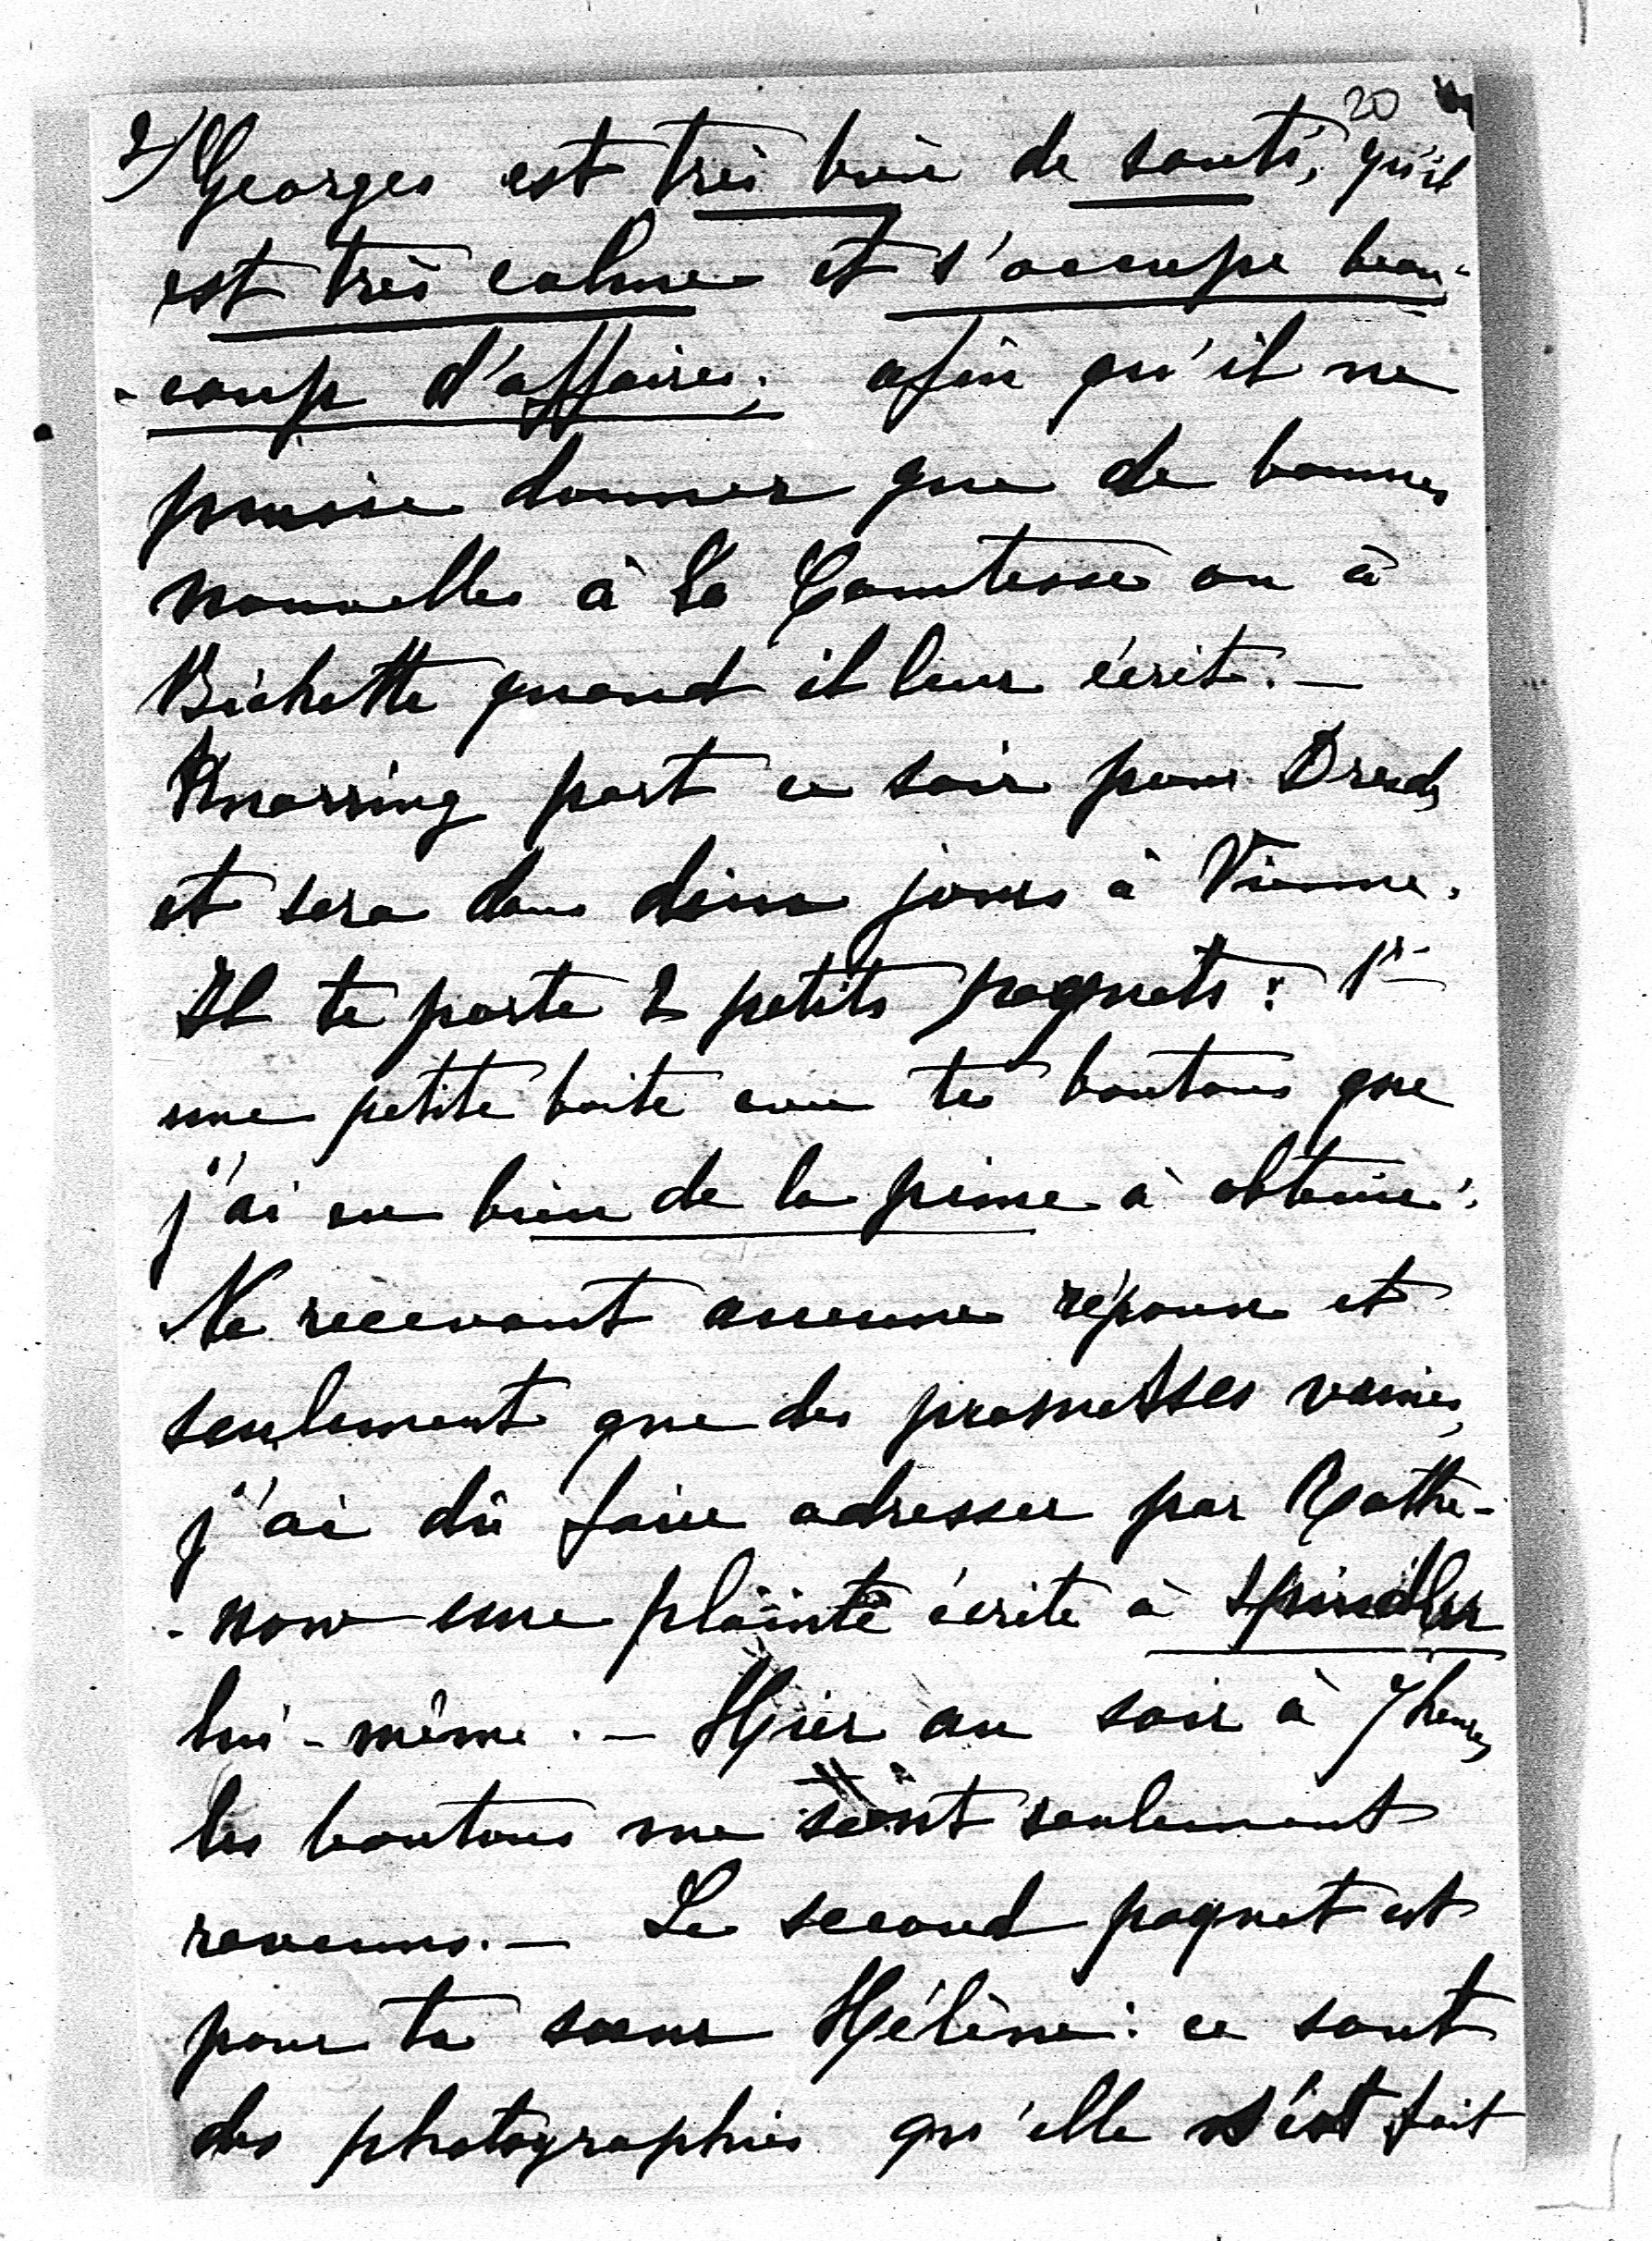 20
2/ Georges est très bien de santé, qu'il
est très calme et s'occupe beau-
-coup d'affaires; afin qu'il ne
puisse donner que de bonnes
nouvelles à la Comtesse ou à
Bichette quand il leur écrit. —
Knorring part ce soir pour Dresde
et sera dans deux jours à Vienne.
Il te porte 2 petits paquets: 1°
une petite boite avec tes boutons que
j'ai eu bien de la peine à obtenir.
Ne recevant aucune réponse et
seulement que des promesses vaines,
j'ai dû faire adresser par Rathe-
-now une plainte écrite à Spindler
lui-même. — Hier au soir à 7 heures
les boutons me sont seulement
revenus. — Le second paquet est
pour ta sœur Hélène: ce sont
des photographies qu'elle s'est fait